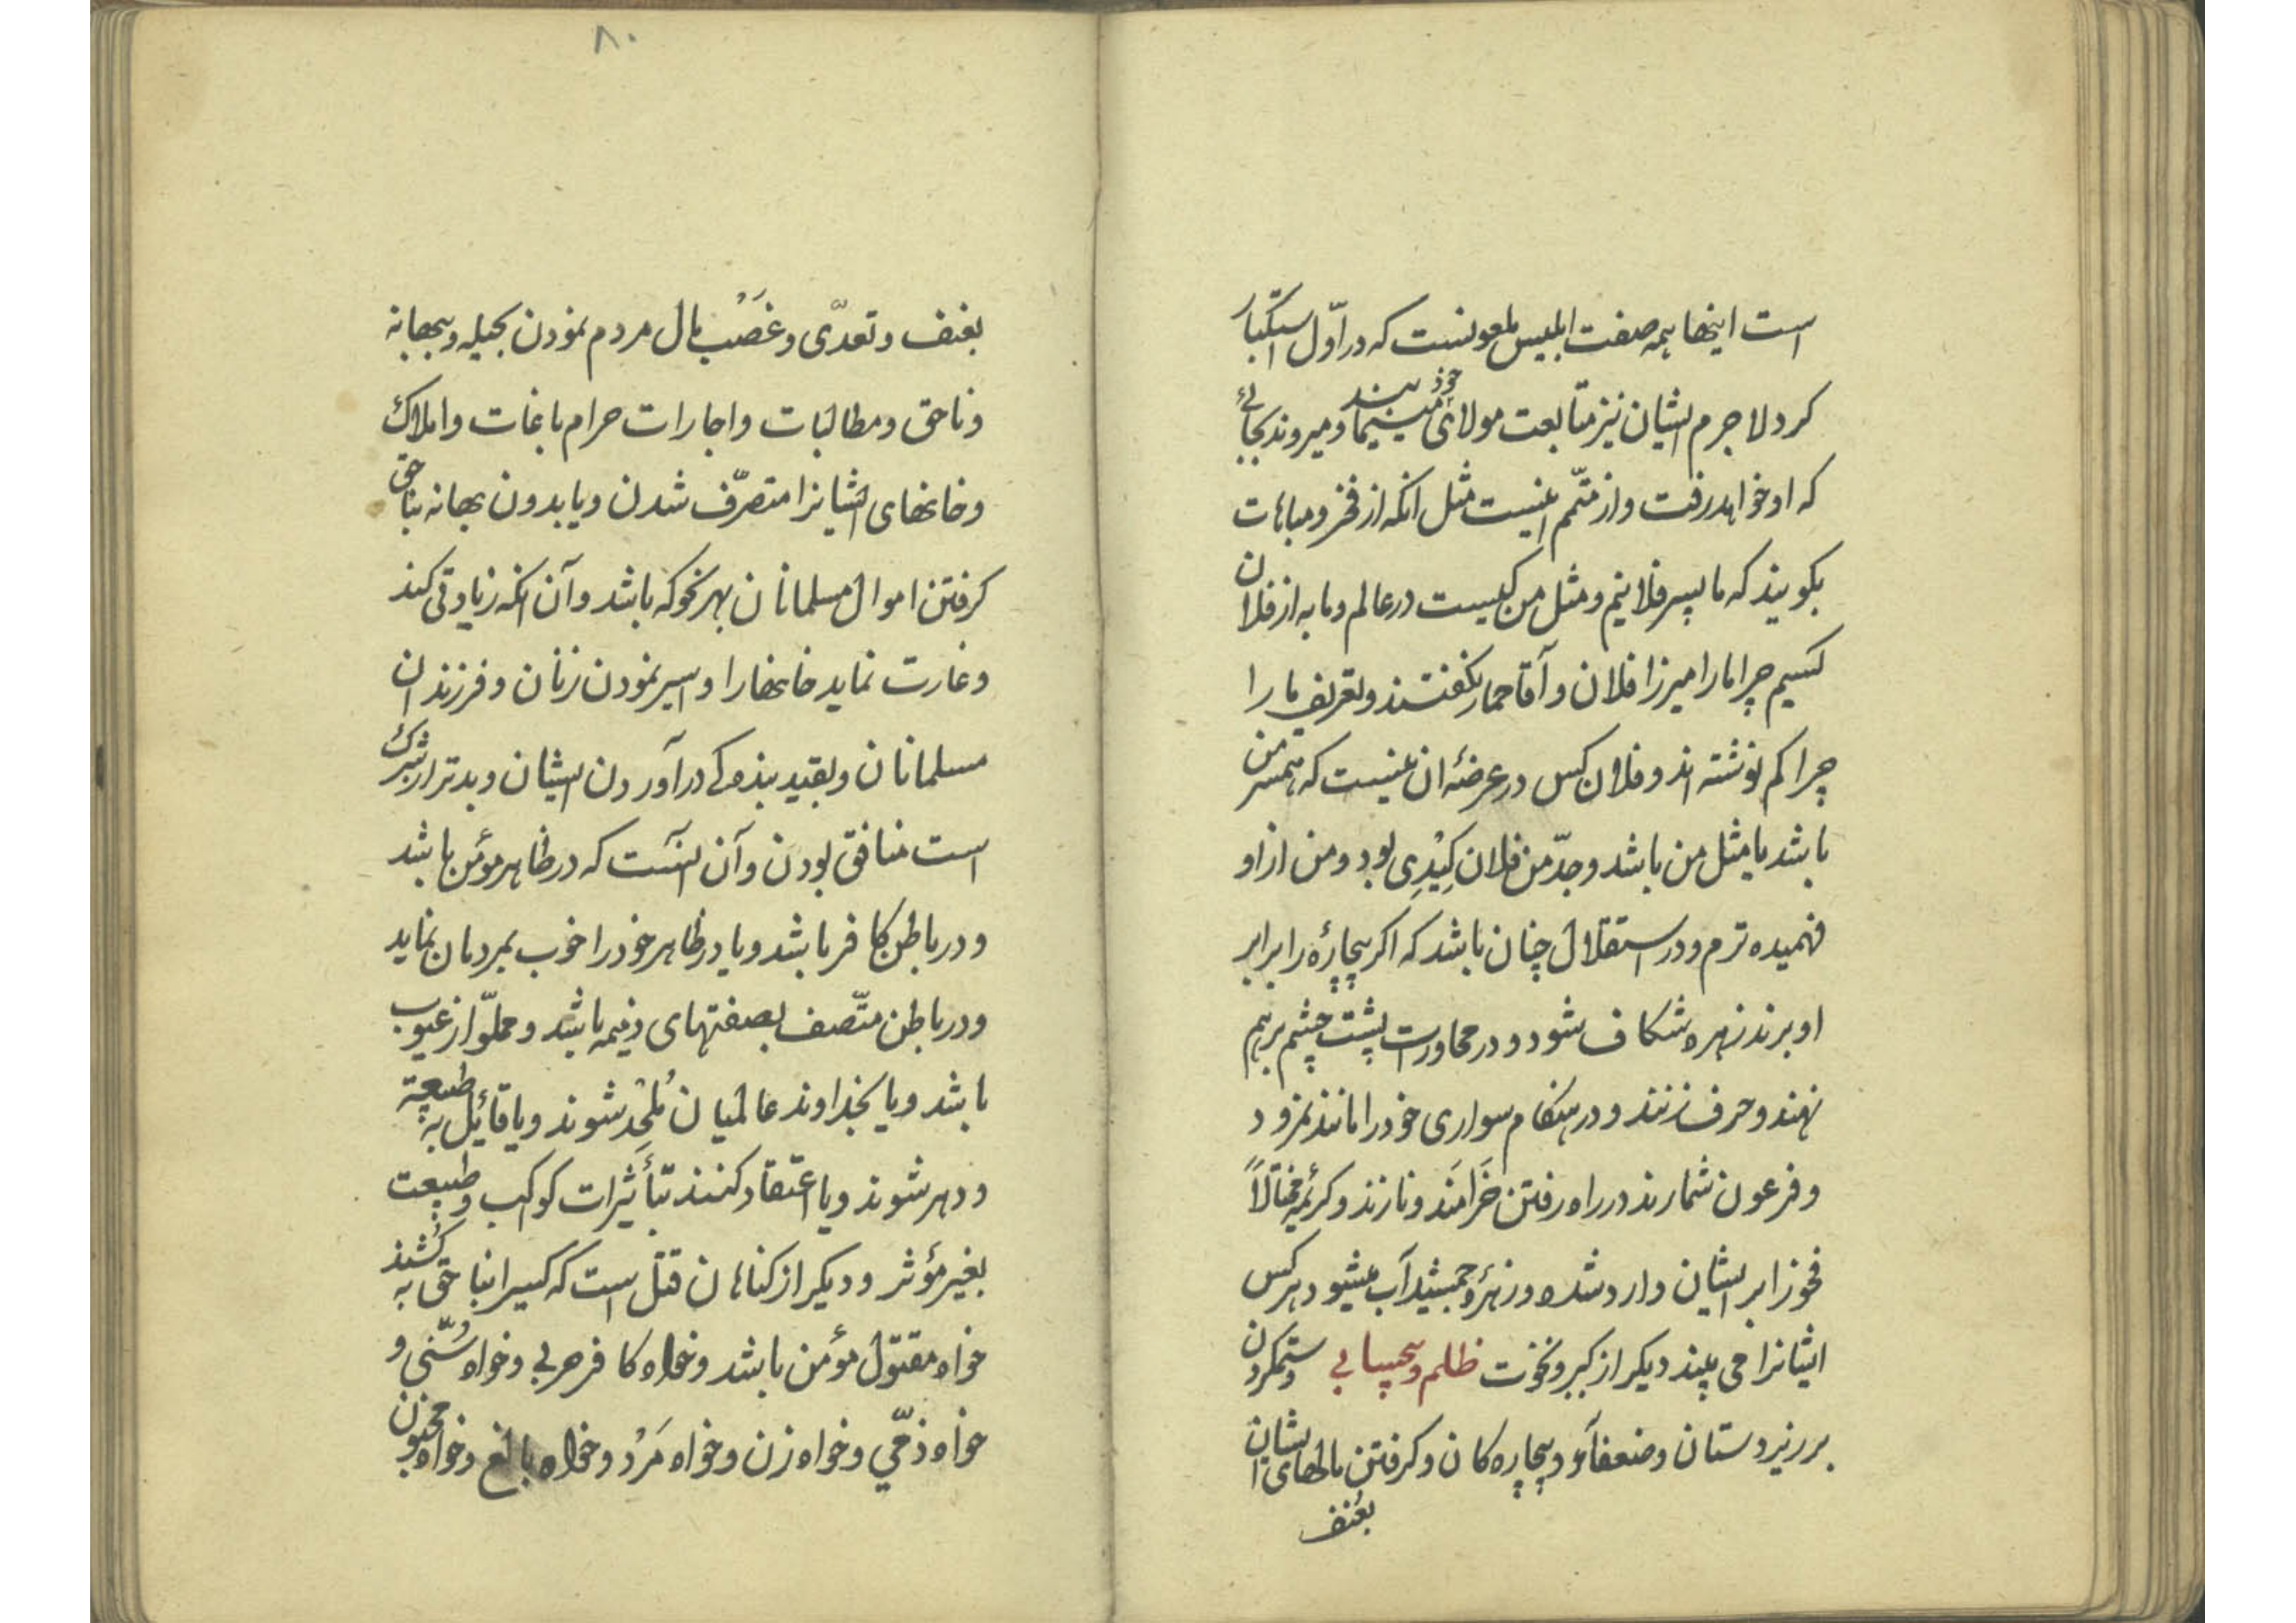 است اینها همه صفت ابلیس ملعونست که در اوّل استکبار
کرد لاجرم ایشان نیز متابعت مولای خود مینمایند و میروند بجائی
که او خواهد رفت و از متمم اینست مثل انکه از فخر و مباهات
بکویند که ما پسر فلانیم و مثل من کیست در عالم و ما به از فلان
کسیم چرا ما را میرزا فلان و آقا حمار نکفتند و تعریف ما را
چرا کم نوشته اند و فلان کس در عرضهٔ ان نیست که همسر من
باشد یا مثل من باشد و جدّ من فلان کیْدِی بود و من از او
فهمیده ترم و در استقلال چنان باشد که اکر بیچارهٔ را برابر
او برند زهره شکاف شود و در محاورت پشت چشم بر هم
نهند و حرف زنند و در هنکام سواری خود را مانند نمرود
و فرعون شمارند در راه رفتن خَرامَند و نازند و کرئمه مختالاً
فخورا بر ایشان وارد شده و زهرهٔ جمشید آب میشود هر کس
ایشانرا می بیند دیکر از کبر و نخوت ظلم و بیحسابی و ستمکردن
بر زیردستان و ضعفآء و بیچاره کان و کرفتن مالهای ایشان
بعُنف
۸۰
بعنف و تعدّی و غَصْب مال مردم نمودن بحیله و ببهانه
و ناحق و مطالبات و اجارات حرام باغات و املاک
و خانهای ایشانرا متصرّف شدن و یا بدون بهانه بناحق
کرفتن اموال مسلمانان بهر نحو که باشد و آن انکه زیادتی کند
و غارت نماید خانهارا و اسیر نمودن زنان و فرزندان
مسلمانان و بقید بندهکی در آوردن ایشان و بدتر از شرک
است منافق بودن و آن اینست که در ظاهر مؤمن باشد
و در باطن کافر باشد و یا در ظاهر خود را خوب بمردمان نماید
و در باطن متّصف بصفتهای ذمیمه باشد و مملوّ از عیوب
باشد و یا بخداوند عالمیان مُلحِدْ شوند و یا قائل به طبیعة
و دهر شوند و یا اعتقاد کنند بتأثیرات کوکب و طبیعت
بغیر مؤثر و دیکر از کناهان قتل است که کسیرا بناحق به کُشند
خواه مقتول مؤمن باشد و خواه کافر حربی و خواه سُنّی و
خواه ذمّی و خواه زن و خواه مَرْد و خواه بالغ و خواه مجنون